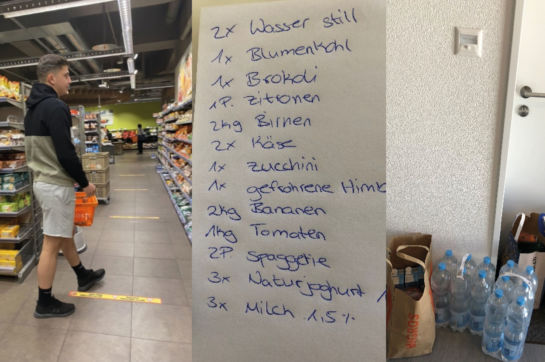 2x Wasser still
1x Blumenkohl
1x Brokoli
1P. Zitronen
2kg Birnen
2x Käse
1x Zucchini
1x gefrohrene Himb
2kg Bananen
1kg Tomaten
2P Spaggetie
3x Naturjoghurt 1
3x Milch 1,5%
MIGROS